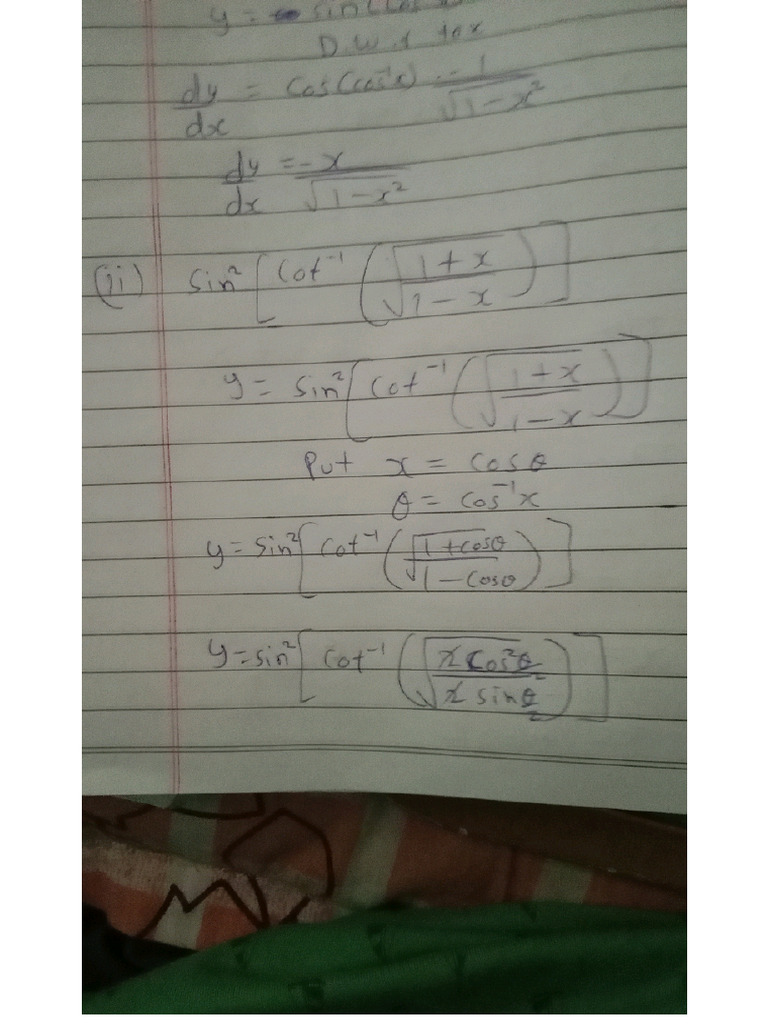 y = sin(cos
D.w.t to x
dy/dx = cos(cos⁻¹x) · -1/√1-x²
dy/dx = -x/√1-x²
(ii) sin² [cot⁻¹ (√1+x/√1-x)]
y = sin² [cot⁻¹ (√1+x/1-x)]
Put x = cosθ
θ = cos⁻¹x
y = sin² [cot⁻¹ (√1+cosθ/1-cosθ)]
y = sin² [cot⁻¹ (√2cos²θ/2/2sin²θ/2)]